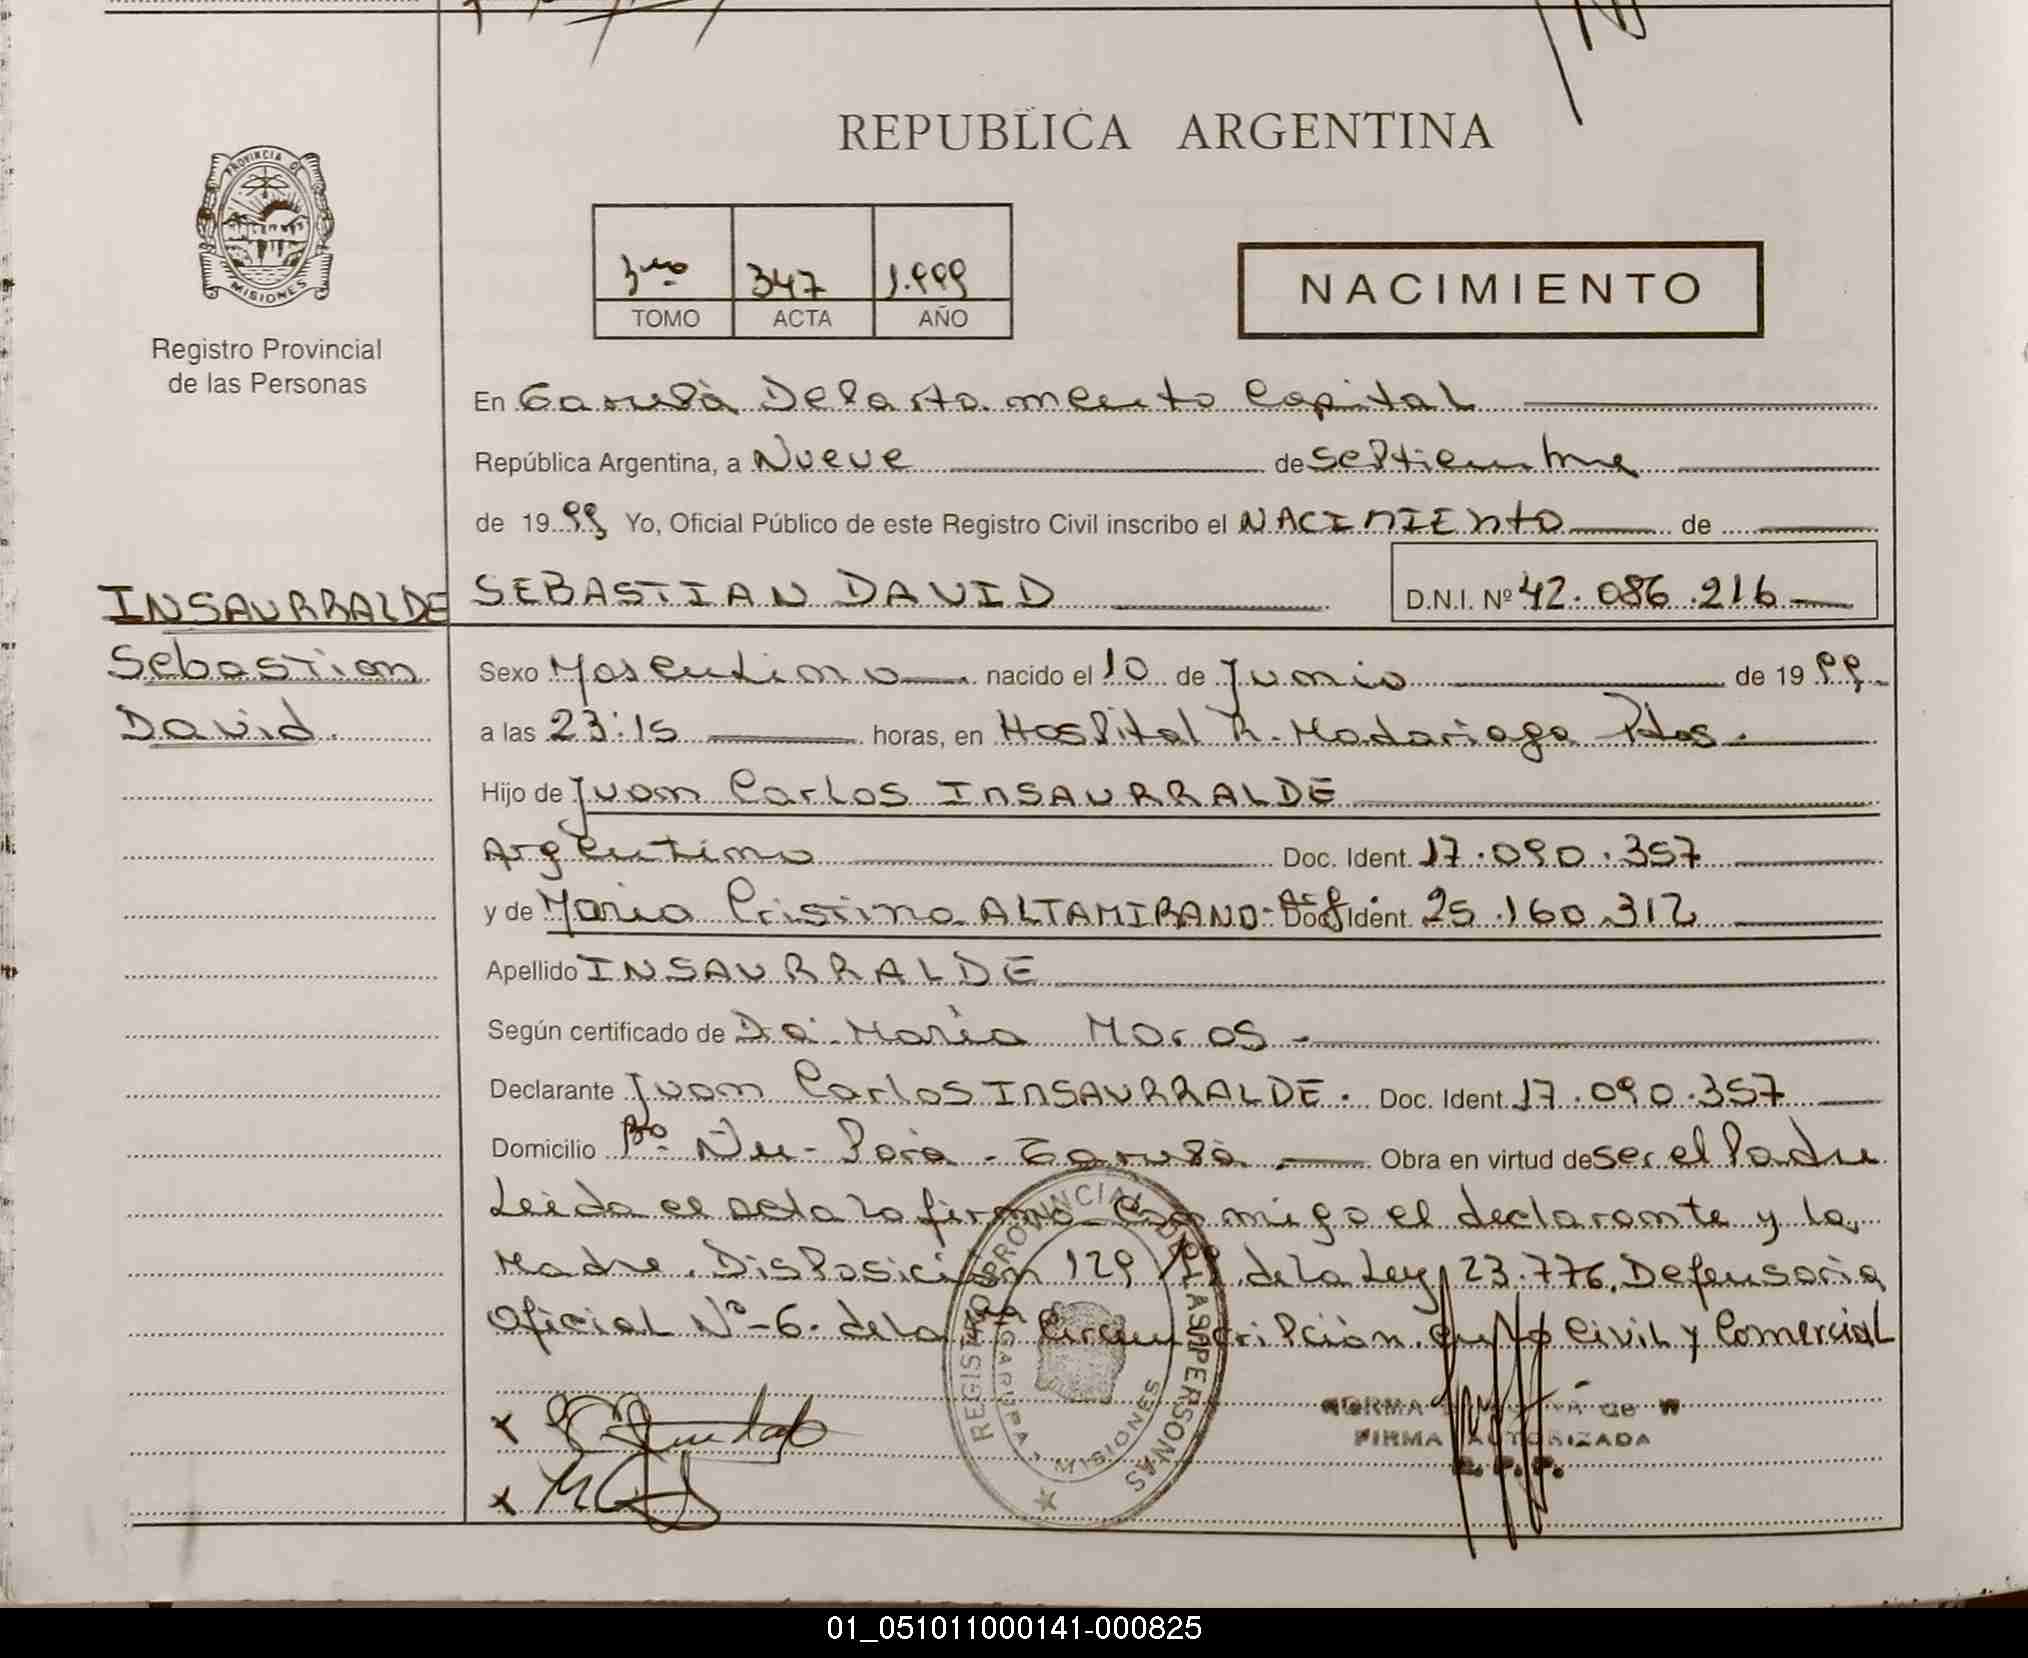 REPUBLICA ARGENTINA
PROVINCIA DE
MISIONES
Registro Provincial
de las Personas
3ro 347 1.999
TOMO ACTA AÑO
NACIMIENTO
En Garupà Departamento Capital
República Argentina, a Nueve de Septiembre
de 19 99 Yo, Oficial Público de este Registro Civil inscribo el NACIMIENTO de
INSAURRALDE SEBASTIAN DAVID D.N.I. Nº 42.086.216
Sebastian
David.
Sexo Masculino nacido el 10 de Junio de 19 99
a las 23:15 horas, en Hospital R. Madariaga Pdas.
Hijo de Juan Carlos INSAURRALDE
Argentino Doc. Ident. 17.090.357
y de Maria Cristina ALTAMIRANO- Doc. Ident. 25.160.312
Apellido INSAURRALDE
Según certificado de Da. Maria Moros
Declarante Juan Carlos INSAURRALDE. Doc. Ident. 17.090.357
Domicilio Bº Ñu-Porá-Garupà. Obra en virtud de ser el Padre
Leida el acta la firma conmigo el declarante y la
Madre. Disposición 129/99 de la Ley 23.776. Defensoria
Oficial Nº-6. de la Circunscripción en lo Civil y Comercial
REGISTRO PROVINCIAL DE LAS PERSONAS
GARUPA
MISIONES
NORMA de
FIRMA AUTORIZADA
R. P. P.
01_051011000141-000825